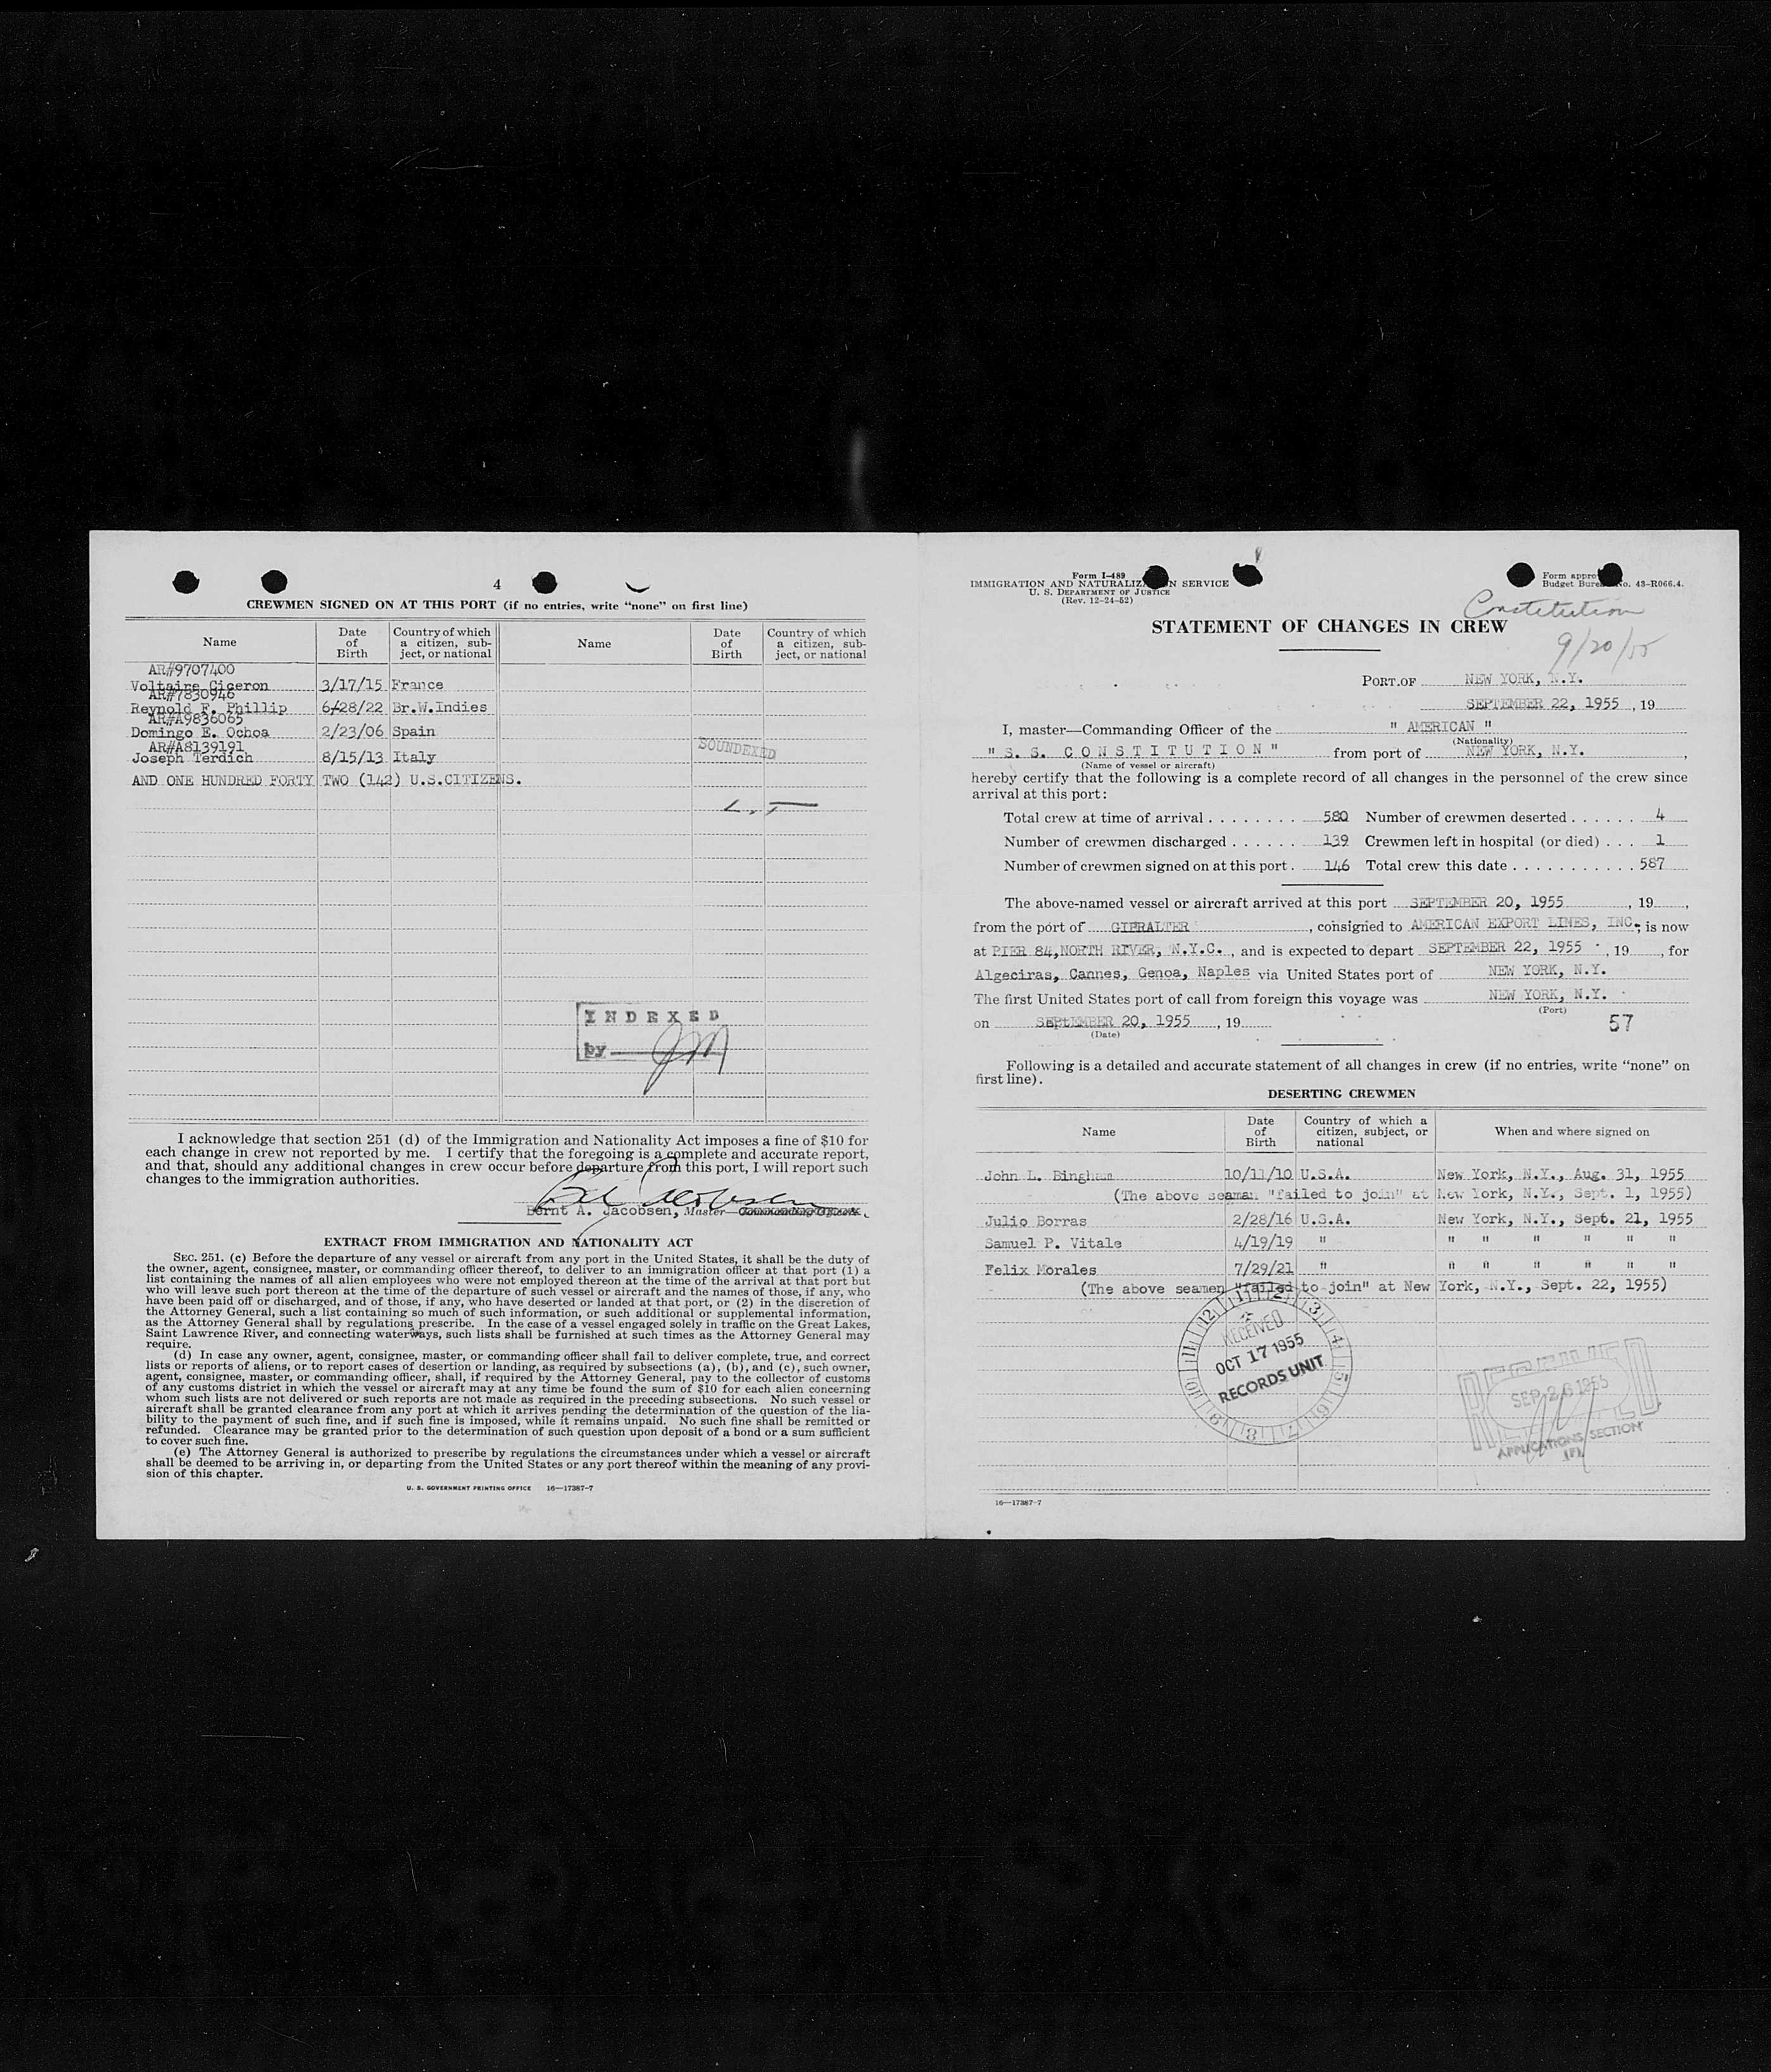 4
CREWMEN SIGNED ON AT THIS PORT (if no entries, write “none” on first line)
Name Date of Birth Country of which a citizen, sub-ject, or national Name Date of Birth Country of which a citizen, sub-ject, or national
AR#9707400
Voltaire Ciceron 3/17/15 France
AR#7830946
Reynold F. Phillip 6/28/22 Br.W.Indies
AR#A9836065
Domingo E. Ochoa 2/23/06 Spain
AR#A8139191
Joseph Terdich 8/15/13 Italy
SOUNDEXED
AND ONE HUNDRED FORTY TWO (142) U.S.CITIZENS.
INDEXED
by JM
I acknowledge that section 251 (d) of the Immigration and Nationality Act imposes a fine of $10 for
each change in crew not reported by me. I certify that the foregoing is a complete and accurate report,
and that, should any additional changes in crew occur before departure from this port, I will report such
changes to the immigration authorities.
Bernt A. Jacobsen, Master—
EXTRACT FROM IMMIGRATION AND NATIONALITY ACT
SEC. 251. (c) Before the departure of any vessel or aircraft from any port in the United States, it shall be the duty of
the owner, agent, consignee, master, or commanding officer thereof, to deliver to an immigration officer at that port (1) a
list containing the names of all alien employees who were not employed thereon at the time of the arrival at that port but
who will leave such port thereon at the time of the departure of such vessel or aircraft and the names of those, if any, who
have been paid off or discharged, and of those, if any, who have deserted or landed at that port, or (2) in the discretion of
the Attorney General, such a list containing so much of such information, or such additional or supplemental information,
as the Attorney General shall by regulations prescribe. In the case of a vessel engaged solely in traffic on the Great Lakes,
Saint Lawrence River, and connecting waterways, such lists shall be furnished at such times as the Attorney General may
require.
(d) In case any owner, agent, consignee, master, or commanding officer shall fail to deliver complete, true, and correct
lists or reports of aliens, or to report cases of desertion or landing, as required by subsections (a), (b), and (c), such owner,
agent, consignee, master, or commanding officer, shall, if required by the Attorney General, pay to the collector of customs
of any customs district in which the vessel or aircraft may at any time be found the sum of $10 for each alien concerning
whom such lists are not delivered or such reports are not made as required in the preceding subsections. No such vessel or
aircraft shall be granted clearance from any port at which it arrives pending the determination of the question of the lia-
bility to the payment of such fine, and if such fine is imposed, while it remains unpaid. No such fine shall be remitted or
refunded. Clearance may be granted prior to the determination of such question upon deposit of a bond or a sum sufficient
to cover such fine.
(e) The Attorney General is authorized to prescribe by regulations the circumstances under which a vessel or aircraft
shall be deemed to be arriving in, or departing from the United States or any port thereof within the meaning of any provi-
sion of this chapter.
U. S. GOVERNMENT PRINTING OFFICE 16—17387-7
Form I-489
IMMIGRATION AND NATURALIZ N SERVICE
U. S. DEPARTMENT OF JUSTICE
(Rev. 12-24-52)
Form appro
Budget Bure No. 43-R066.4.
Constitution
STATEMENT OF CHANGES IN CREW
9/20/55
PORT OF NEW YORK, N.Y.
SEPTEMBER 22, 1955, 19
I, master—Commanding Officer of the " AMERICAN "
(Nationality)
" S. S. C O N S T I T U T I O N " from port of NEW YORK, N.Y.,
(Name of vessel or aircraft)
hereby certify that the following is a complete record of all changes in the personnel of the crew since
arrival at this port:
Total crew at time of arrival . . . . . . . . 580 Number of crewmen deserted . . . . . . 4
Number of crewmen discharged . . . . . . 139 Crewmen left in hospital (or died) . . . 1
Number of crewmen signed on at this port . 146 Total crew this date . . . . . . . . . . . 587
The above-named vessel or aircraft arrived at this port SEPTEMBER 20, 1955, 19 ,
from the port of GIBRALTER, consigned to AMERICAN EXPORT LINES, INC.; is now
at PIER 84, NORTH RIVER, N.Y.C., and is expected to depart SEPTEMBER 22, 1955, 19 , for
Algeciras, Cannes, Genoa, Naples via United States port of NEW YORK, N.Y.
The first United States port of call from foreign this voyage was NEW YORK, N.Y.
(Port)
on SeptEMBER 20, 1955, 19
(Date)
57
Following is a detailed and accurate statement of all changes in crew (if no entries, write “none” on
first line).
DESERTING CREWMEN
Name Date of Birth Country of which a citizen, subject, or national When and where signed on
John L. Bingham 10/11/10 U.S.A. New York, N.Y., Aug. 31, 1955
(The above seaman "failed to join" at New York, N.Y., Sept. 1, 1955)
Julio Borras 2/28/16 U.S.A. New York, N.Y., Sept. 21, 1955
Samuel P. Vitale 4/19/19 " " " " " " "
Felix Morales 7/29/21 " " " " " " "
(The above seamen "failed to join" at New York, N.Y., Sept. 22, 1955)
RECEIVED
OCT 17 1955
RECORDS UNIT
12 1 2 3 4 5 6 7 8 9 10 11
RECEIVED
SEP 26 1955
APPLICATIONS SECTION
16—17387-7